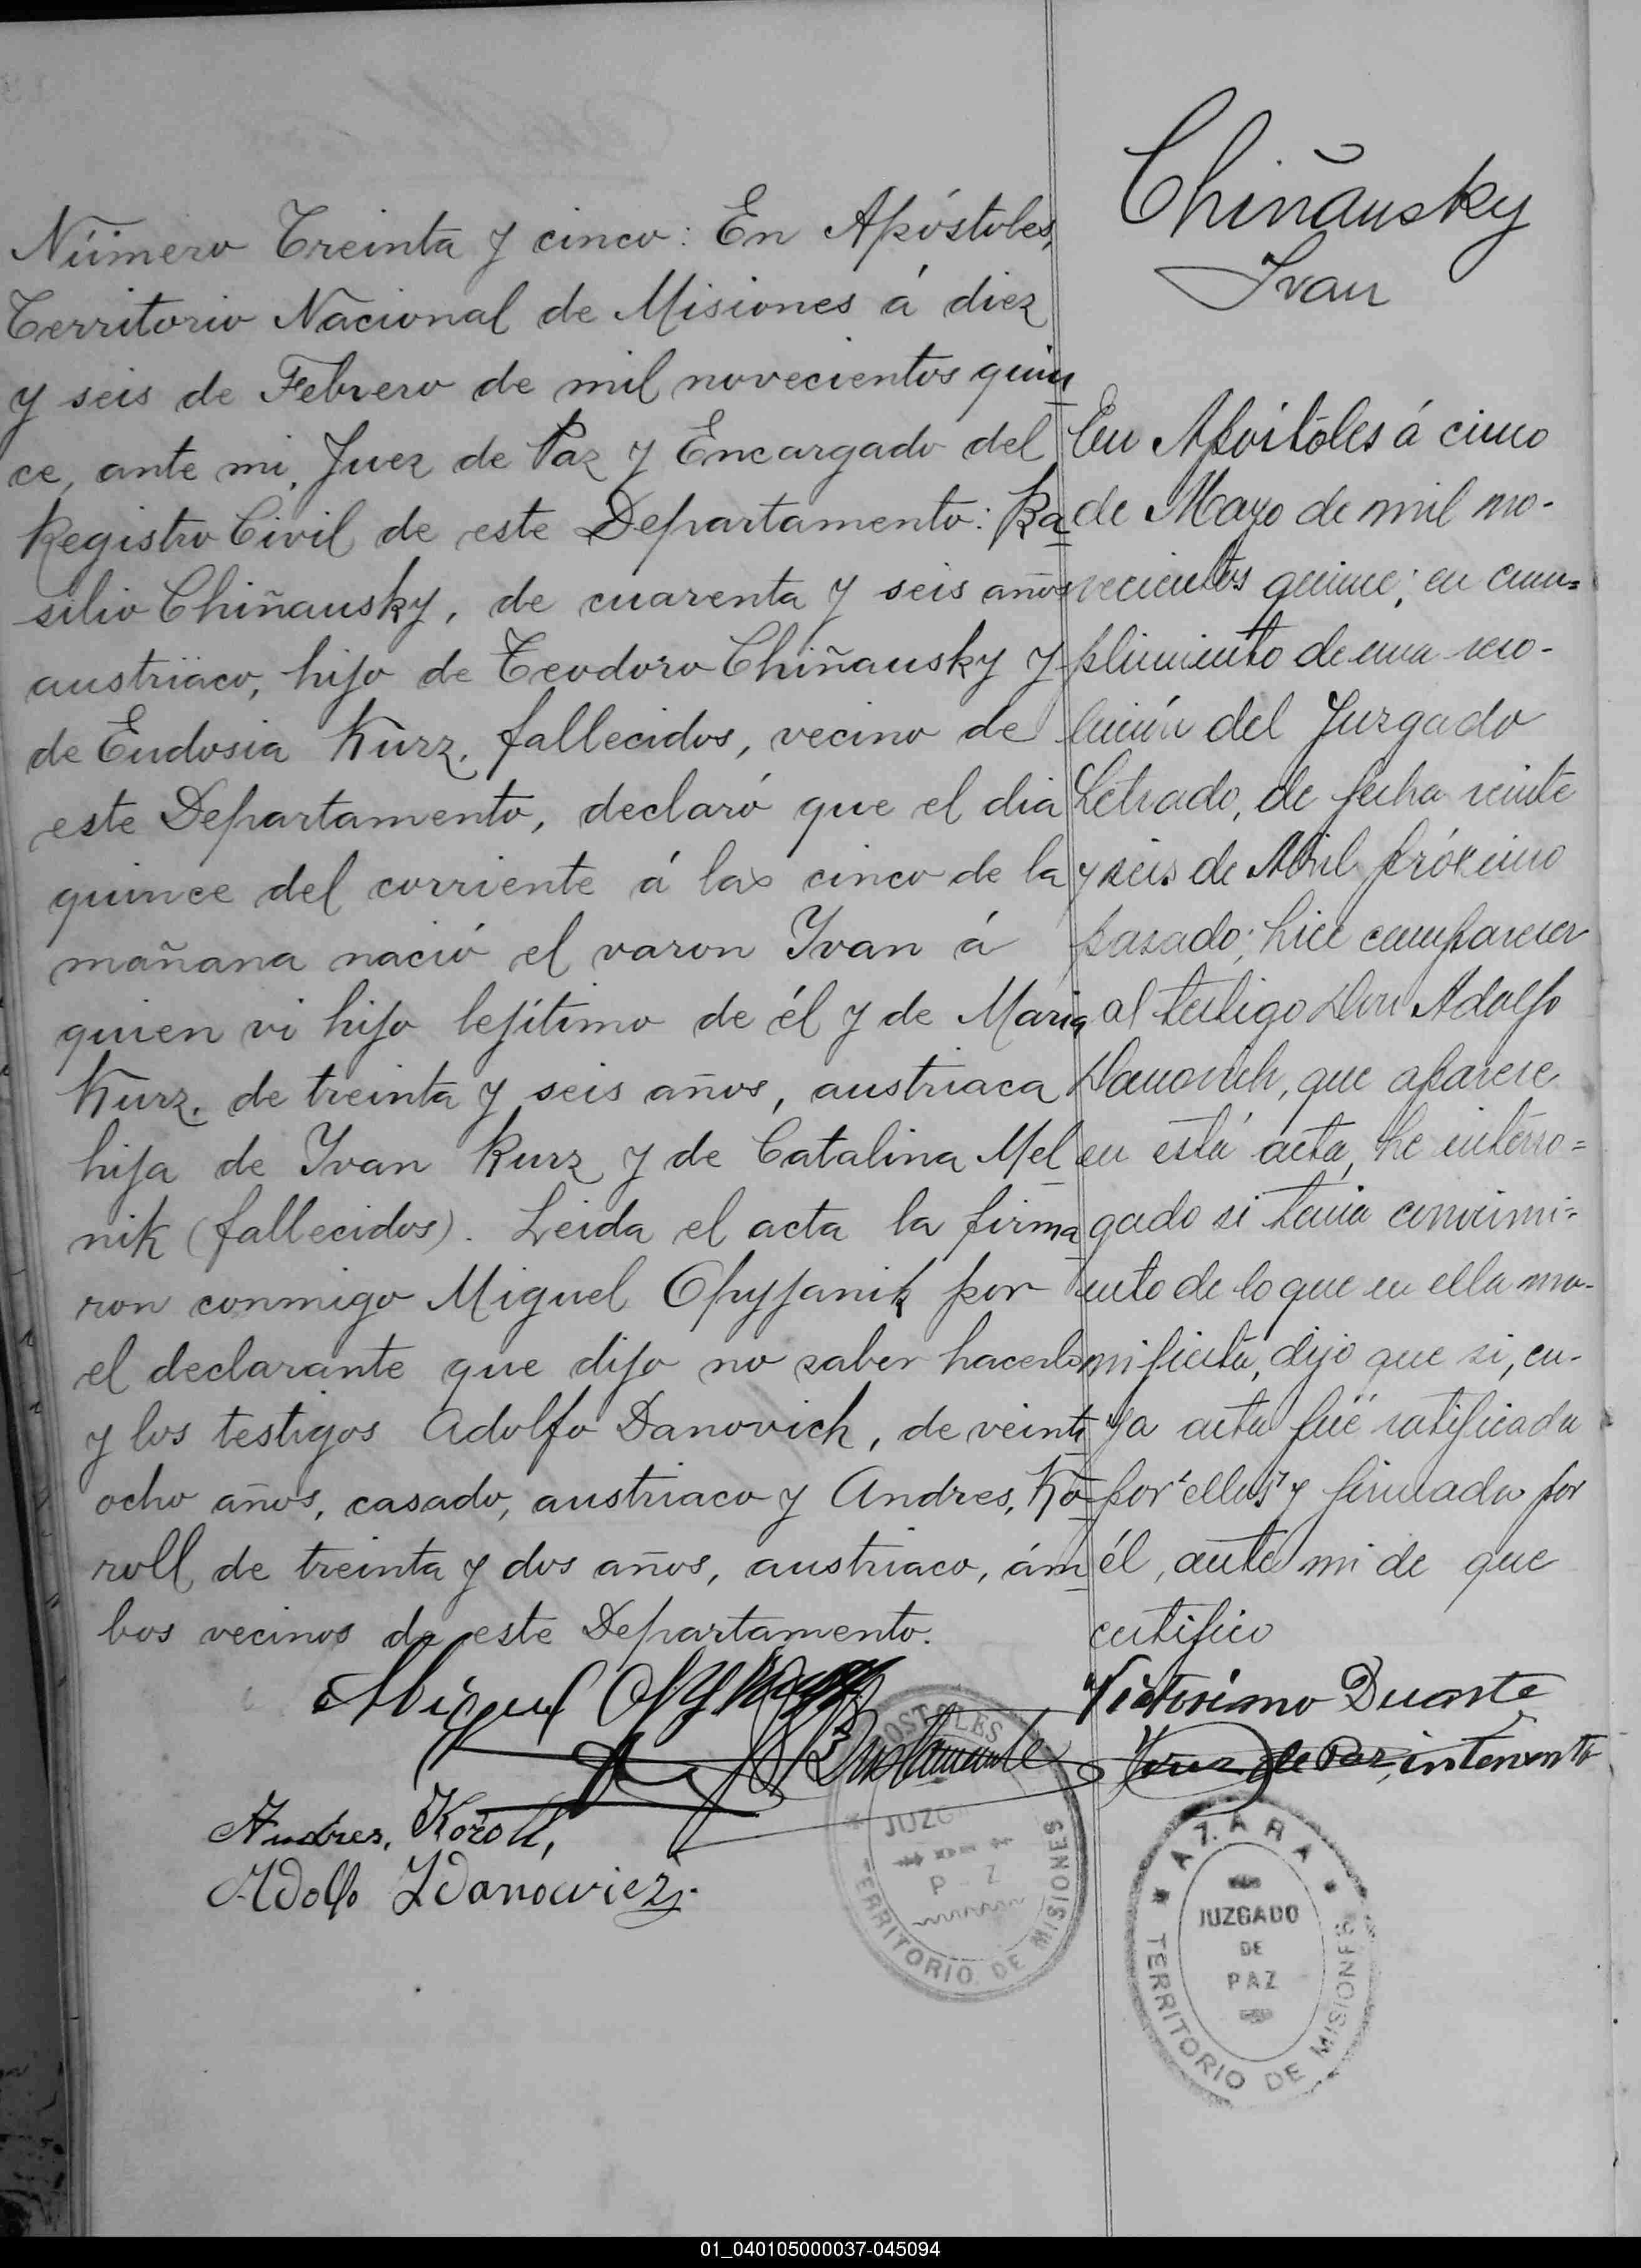 Chiñausky
Ivan
Número Treinta y cinco: En Apóstoles,
Territorio Nacional de Misiones á diez
y seis de Febrero de mil novecientos quin
ce, ante mi, Juez de Paz y Encargado del
Registro Civil de este Departamento: Ba
silio Chiñausky, de cuarenta y seis años
austriaco, hijo de Teodoro Chiñausky y
de Eudosia Kurz, fallecidos, vecino de
este Departamento, declaró que el dia
quince del corriente á las cinco de la
mañana nació el varon Ivan á
quien vi hijo lejítimo de él y de Maria
Kurz, de treinta y seis años, austriaca
hija de Ivan Kurz y de Catalina Mel
nik (fallecidos). Leida el acta la firma
ron conmigo Miguel Opyjanik por
el declarante que dijo no saber hacerlo
y los testigos Adolfo Danovich, de veinti
ocho años, casado, austriaco y Andres, Ko
roll de treinta y dos años, austriaco, ám
bos vecinos de este Departamento.
Miguel
Bustamante
Andres, Koroll,
Adolfo Zdanowicz.
APOSTOLES
JUZG
P Z
TERRITORIO DE MISIONES
En Apóstoles á cinco
de Mayo de mil no-
vecientos quince; en cum=
plimiento de una reso-
lución del Juzgado
Letrado, de fecha veinte
y seis de Abril próximo
pasado; hice comparecer
al testigo Don Adolfo
Danovich, que aparece
en está acta, he interro=
gado si tenia conocimi=
ento de lo que en ella ma-
nifiesta, dijo que si, cu-
ya acta fué ratificada
por "ellos" y firmada por
él, ante mi de que
certifico
Victorino Duarte
Juez de Paz, intervento
AZARA
JUZGADO
DE
PAZ
TERRITORIO DE MISIONES
01_040105000037-045094